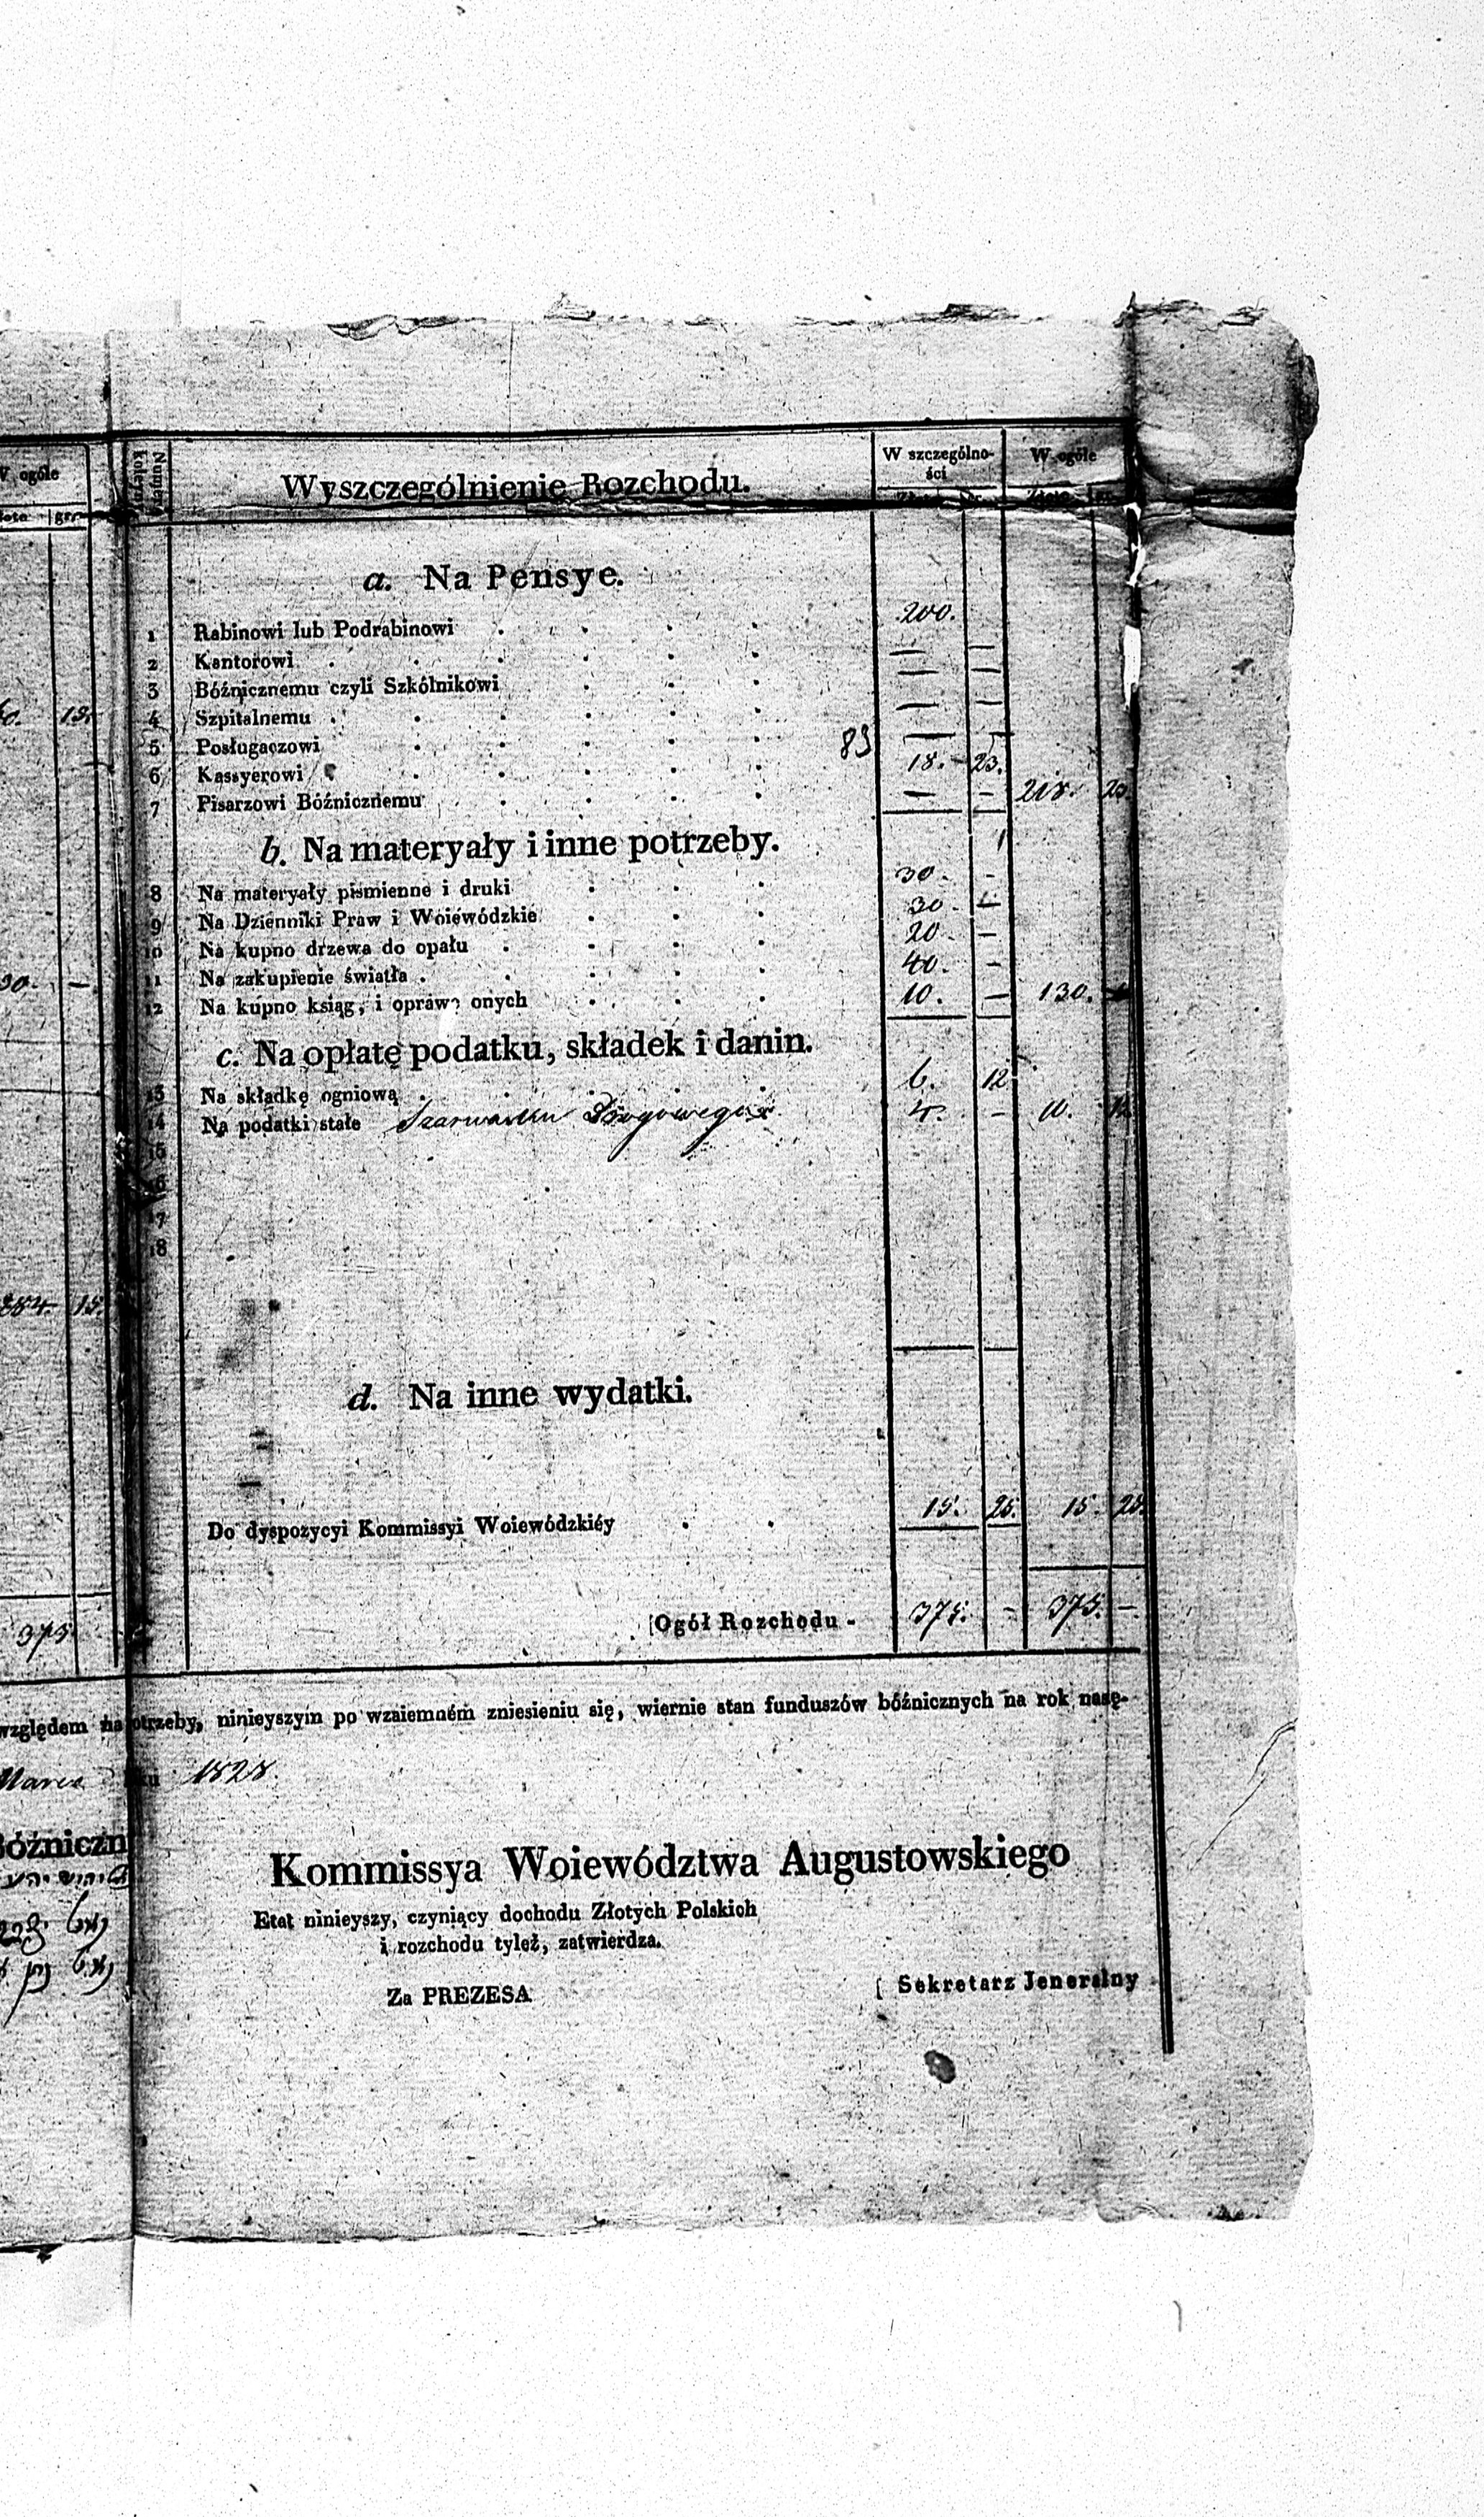 W ogóle
gr.
15.
30. —
15.
375
Numera kolejne
Wyszczególnienie Rozchodu.
W szczególno-
ści
W ogóle
a. Na Pensye.
1 Rabinowi lub Podrabinowi . . . . 200.
2 Kantorowi . . . . . . — —
3 Bóźnicznemu czyli Szkólnikowi . . . — —
4 Szpitalnemu . . . . . . — —
5 Posługaczowi . . . . . — —
83
6 Kassyerowi . . . . . 18. 23.
7 Pisarzowi Bóźnicznemu . . . . — — 218. 23.
b. Na materyały i inne potrzeby.
8 Na materyały piśmienne i druki . . . 30. -
9 Na Dzienniki Praw i Woiewódzkie . . . 30. -
10 Na kupno drzewa do opału . . . . 20. —
11 Na zakupienie światła . . . . . 40. -
12 Na kupno ksiąg, i oprawę onych . . . 10. — 130. —
c. Na opłatę podatku, składek i danin.
13 Na składkę ogniową . . . . . 6. 12
14 Na podatki stałe Szarwarku Drogowego 4. - 10. 12.
15
16
17
18
15.
d. Na inne wydatki.
Do dyspozycyi Kommissyi Woiewódzkiéy . . 15. 25. 15. 25.
Ogół Rozchodu - 375. - 375. —
względem na potrzeby, ninieyszym po wzaiemném zniesieniu się, wiernie stan funduszów bóźnicznych na rok nasę-
Marca 1828.
Bóźniczn
Kommissya Woiewództwa Augustowskiego
Etat ninieyszy, czyniący dochodu Złotych Polskich
i rozchodu tyleż, zatwierdza.
Za PREZESA
Sekretarz Jeneralny